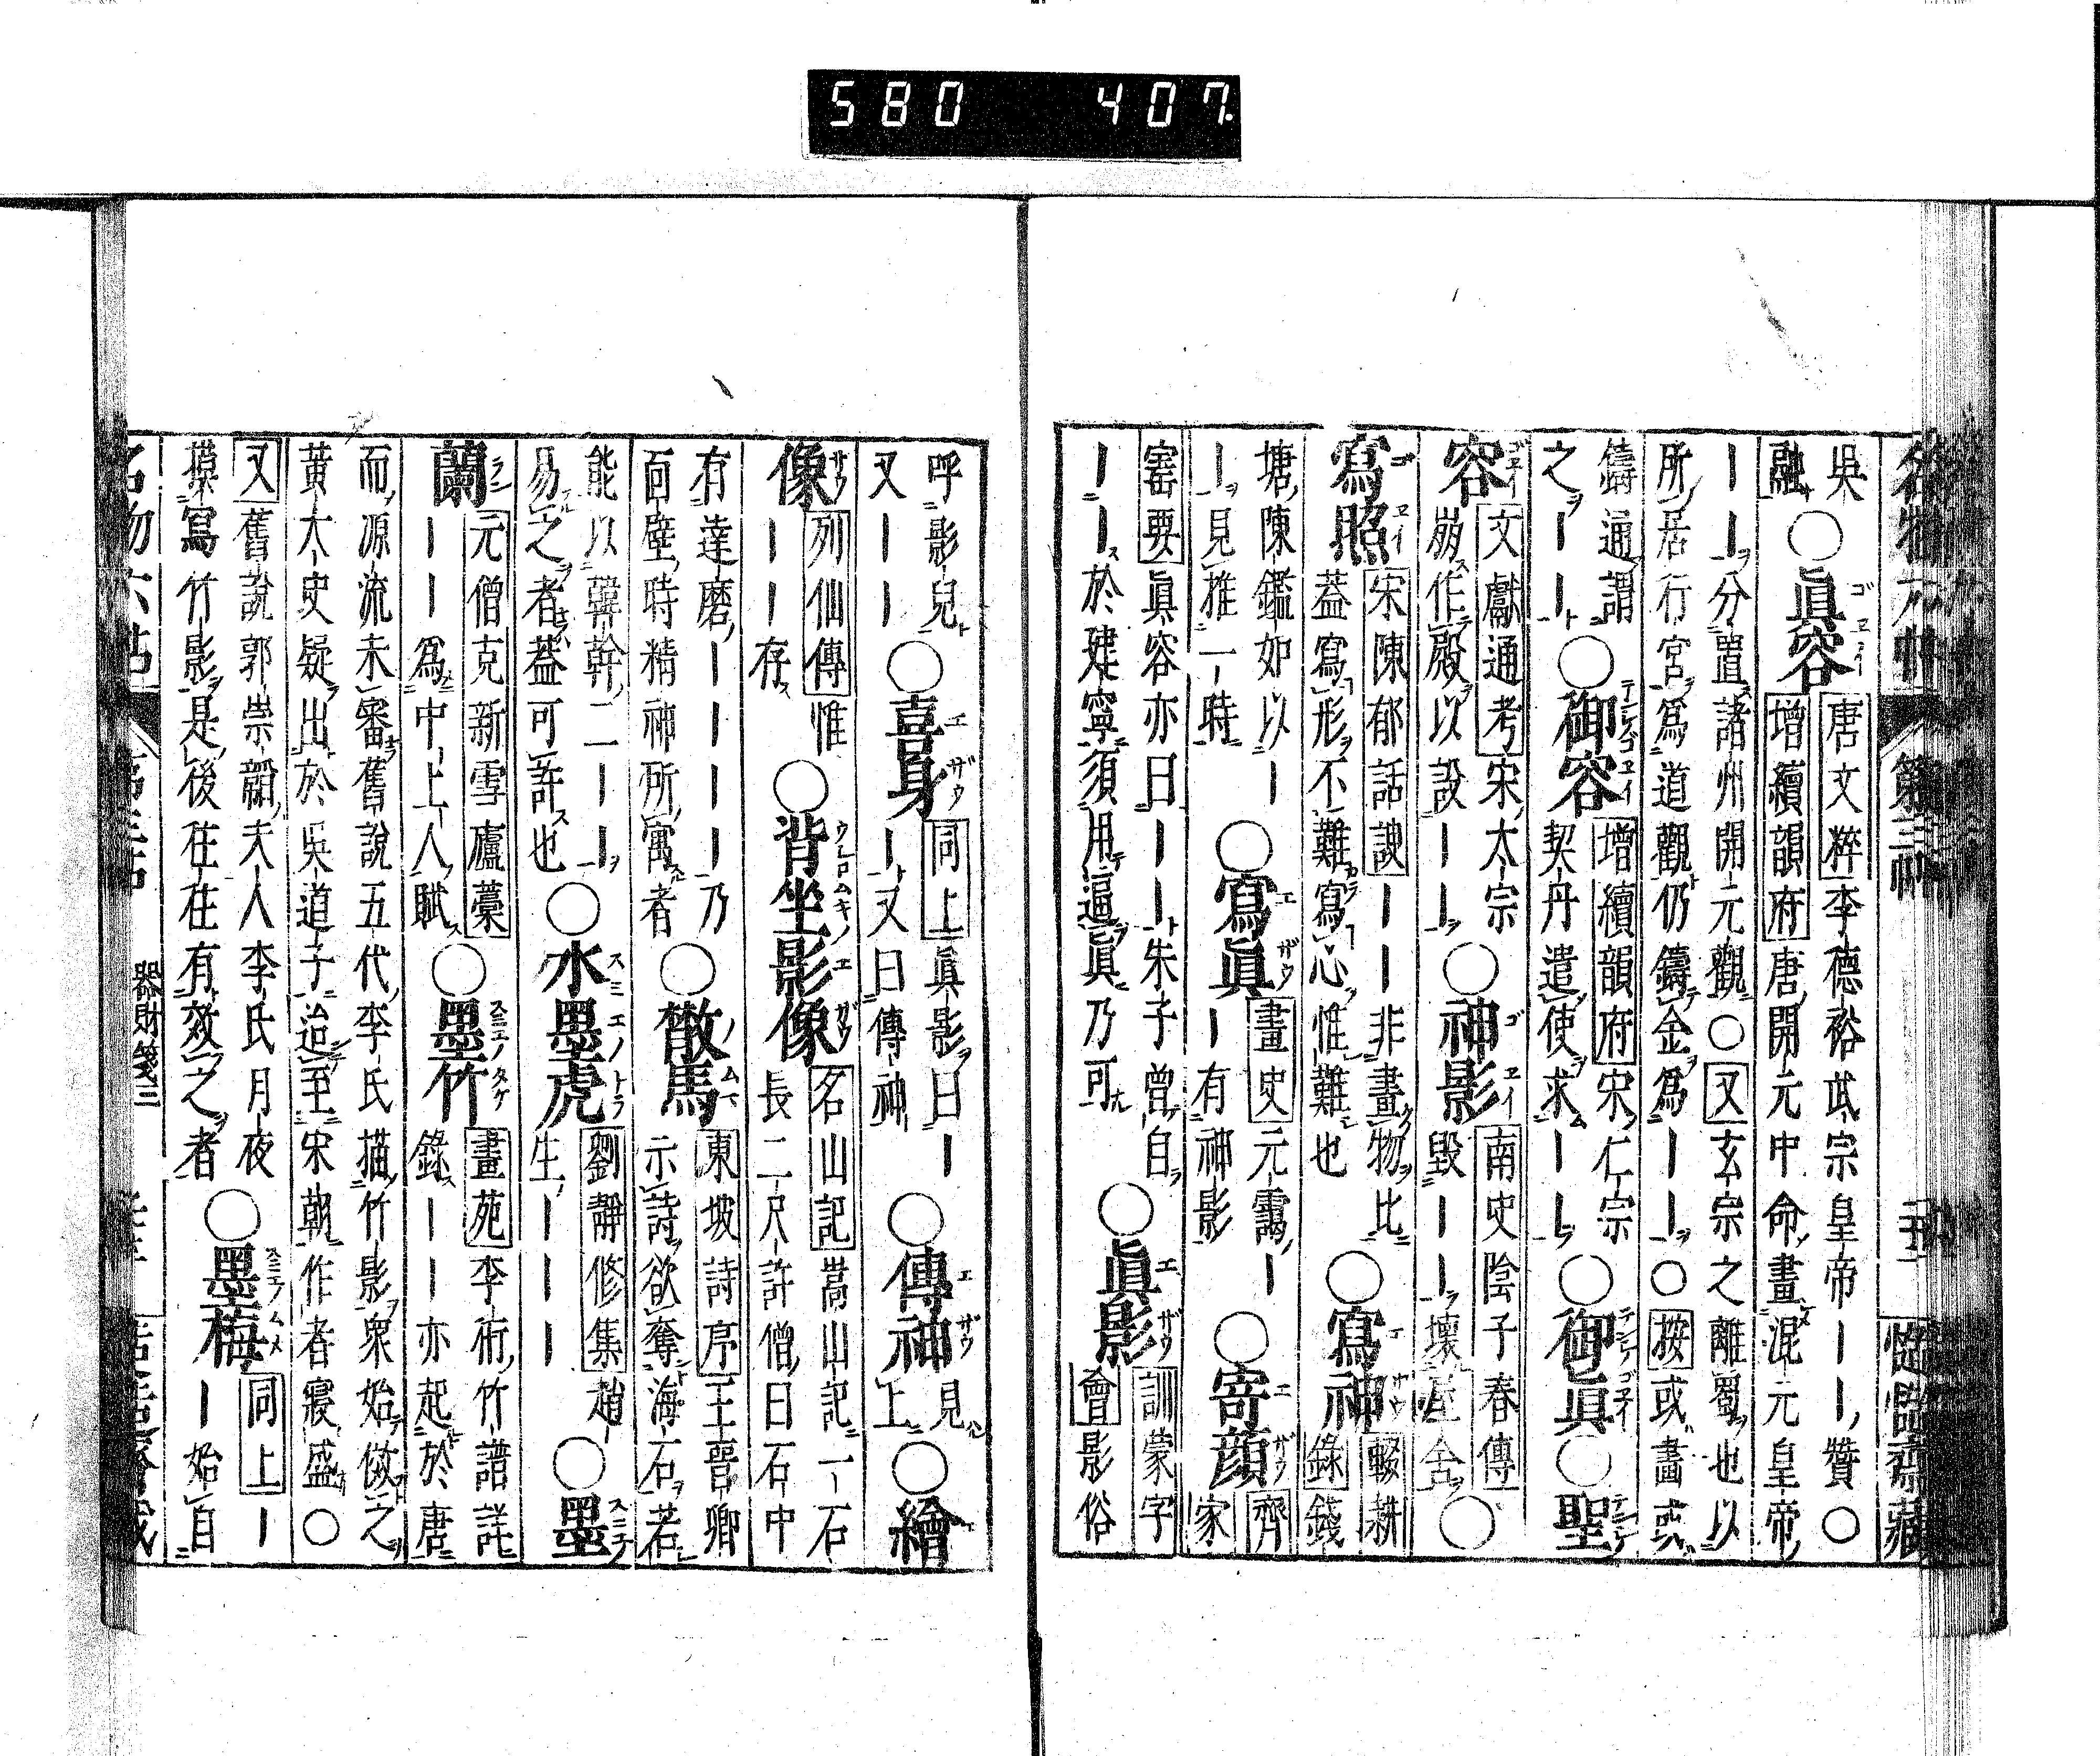 名物六帖 第三帖
吳融○眞容唐文粹李德裕武宗皇帝――贊○增續韻府唐開元中命畫混元皇帝
――分置諸州開元觀○又玄宗之離蜀也以所居行宮爲道觀仍鑄金爲――○按或畫或
鑄通謂之――○御容增續韻府宋仁宗契丹遣使求――○御眞○聖
容文獻通考宋太宗崩作殿以設――○神影南史陰子春傳毀――壞屋舍○
寫照宋陳郁話諛――非畫物比蓋寫形不難寫心惟難也○寫神輟耕錄錢
塘陳鑑如以――見推一時○寫眞畫史元靄――有神影○寄顏齊家
寚要眞容亦曰――朱子曾自――於建寧須用逼眞乃可○眞影訓蒙字會影俗
呼影兒又――○喜身同上眞影曰――又曰傳神○傳神見上○繪
像列仙傳惟――存○背坐影像名山記嵩山記一石長二尺許僧曰石中
有達磨――――乃面壁時精神所寓者○散馬東坡詩序王晉卿示詩欲奪海石若
能以韓幹二――易之者蓋可許也○水墨虎劉靜修集趙生―――○墨
蘭元僧克新雪廬藁――爲中上人賦○墨竹畫苑李衎竹譜詳錄――亦起於唐
而源流未審舊說五代李氏描竹影衆始倣之黃太史疑出於吳道子迨至宋朝作者寢盛○
又舊說郭崇韜夫人李氏月夜摸寫竹影是後往往有效之者○墨梅同上――始自
名物六帖 器財箋三